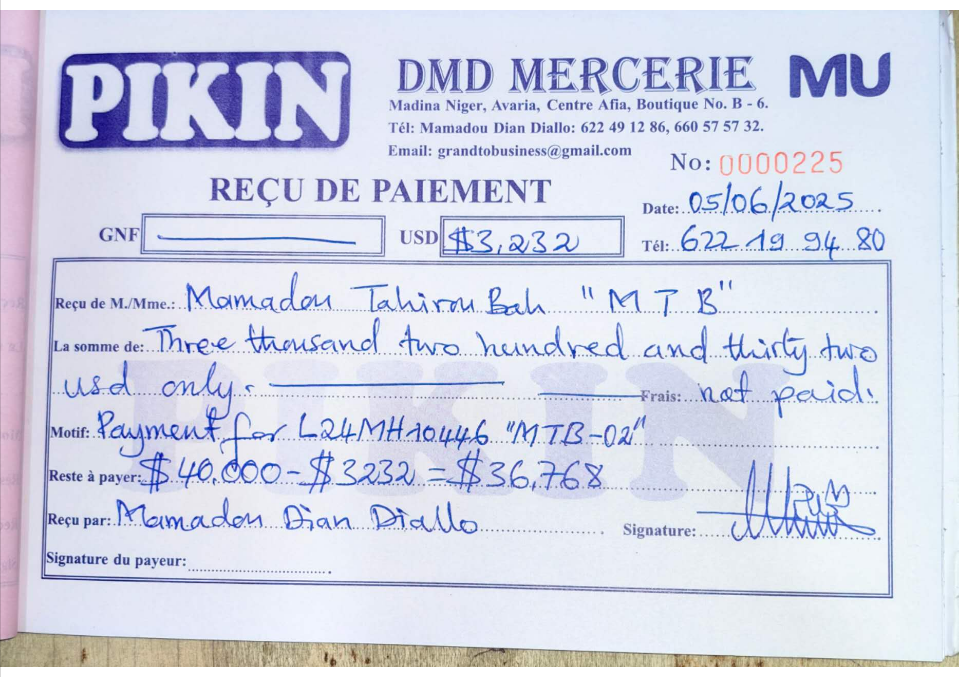 PIKIN
DMD MERCERIE
MU
Madina Niger, Avaria, Centre Afia, Boutique No. B - 6.
Tél: Mamadou Dian Diallo: 622 49 12 86, 660 57 57 32.
Email: grandtobusiness@gmail.com
No: 0000225
REÇU DE PAIEMENT
Date: 05/06/2025
GNF USD $3,232
Tél: 622 19 94 80
Reçu de M./Mme.: Mamadou Tahirou Bah "M T B"
La somme de: Three thousand two hundred and thirty two
usd only. Frais: not paid.
Motif: Payment for L24MH10446 "MTB-02"
Reste à payer: $40,000-$3232 = $36,768
Reçu par: Mamadou Dian Diallo Signature:
Signature du payeur:
PIKIN